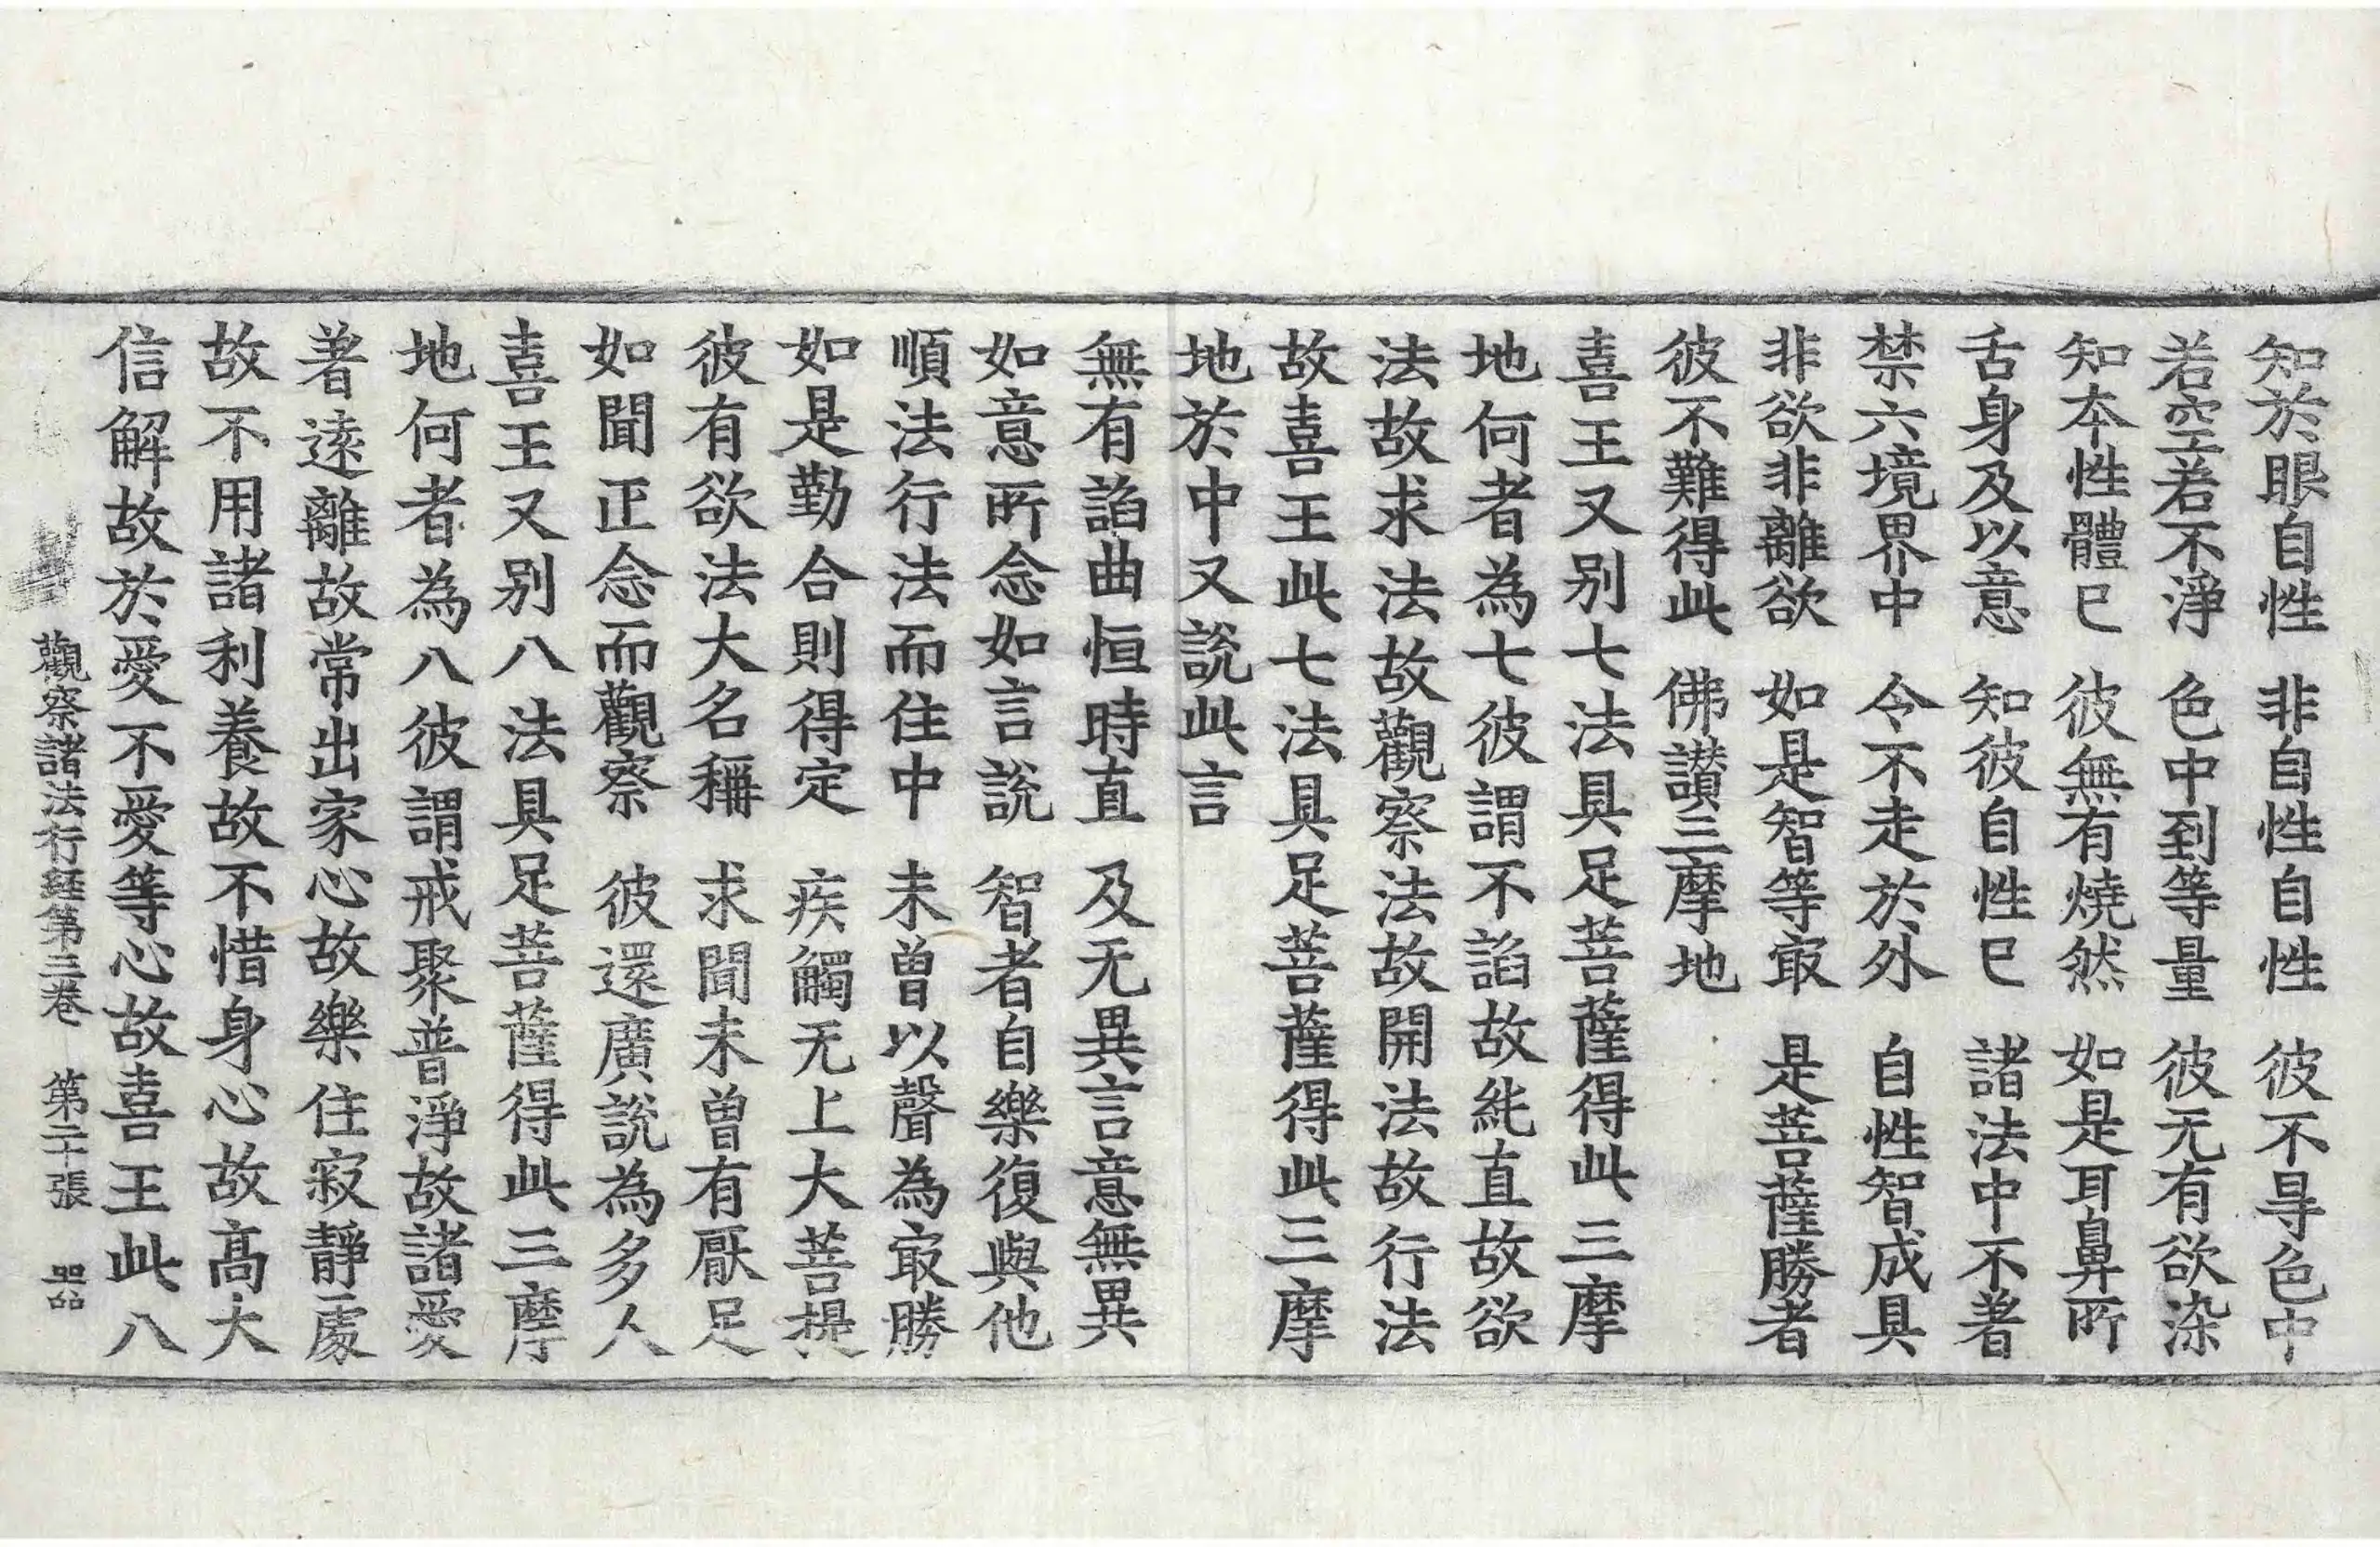 知於眼自性　非自性自性　彼不㝵色中
若空若不淨　色中到等量　彼无有欲染
知本性體已　彼無有燒然　如是耳鼻所
舌身及以意　知彼自性已　諸法中不著
禁六境界中　令不走於外　自性智成具
非欲非離欲　如是智等㝡　是菩薩勝者
彼不難得此　佛讃三摩地
喜王又別七法具足菩薩得此三摩
地何者為七彼謂不諂故能直故欲
法故求法故觀察法故開法故行法
故喜王此七法具足菩薩得此三摩
地於中又說此言
無有諂曲恒時直　及无異言意無異
如意所念如言說　智者自樂復與他
順法行法而住中　未曾以聲為㝡勝
如是勤合則得定　疾觸无上大菩提
彼有欲法大名稱　求聞未曾有厭足
如聞正念而觀察　彼還廣說為多人
喜王又別八法具足菩薩得此三摩
地何者為八彼謂戒聚普淨故諸愛
著遠離故常出家心故樂住寂靜處
故不用諸利養故不惜身心故高大
信解故於愛不愛等心故喜王此八
觀察諸法行経第三巻　第二十張　器